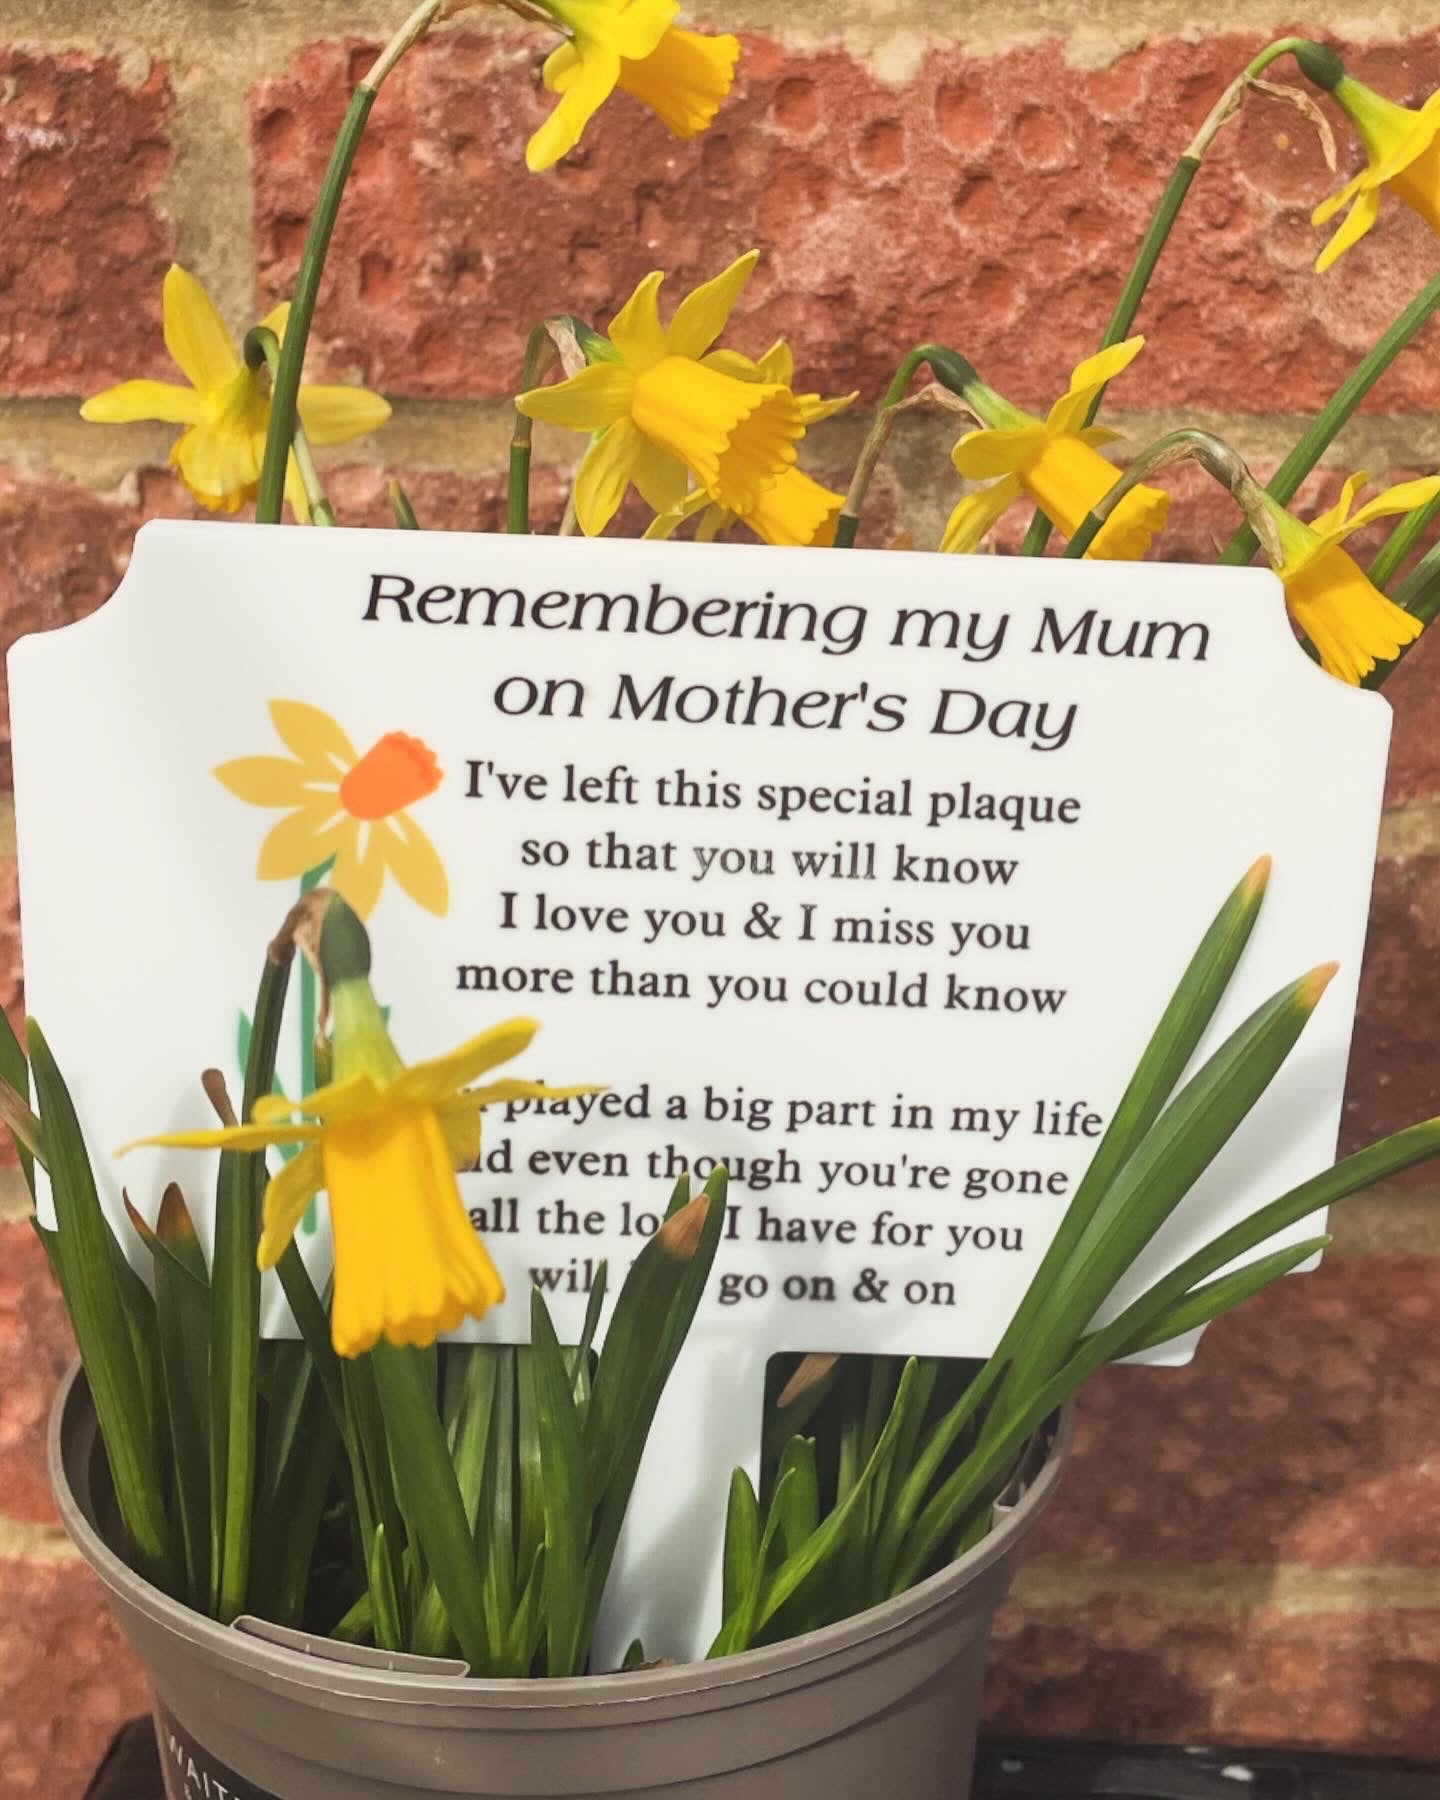 Remembering my Mum
on Mother's Day
I've left this special plaque
so that you will know
I love you & I miss you
more than you could know
played a big part in my life
even though you're gone
all the I have for you
will go on & on